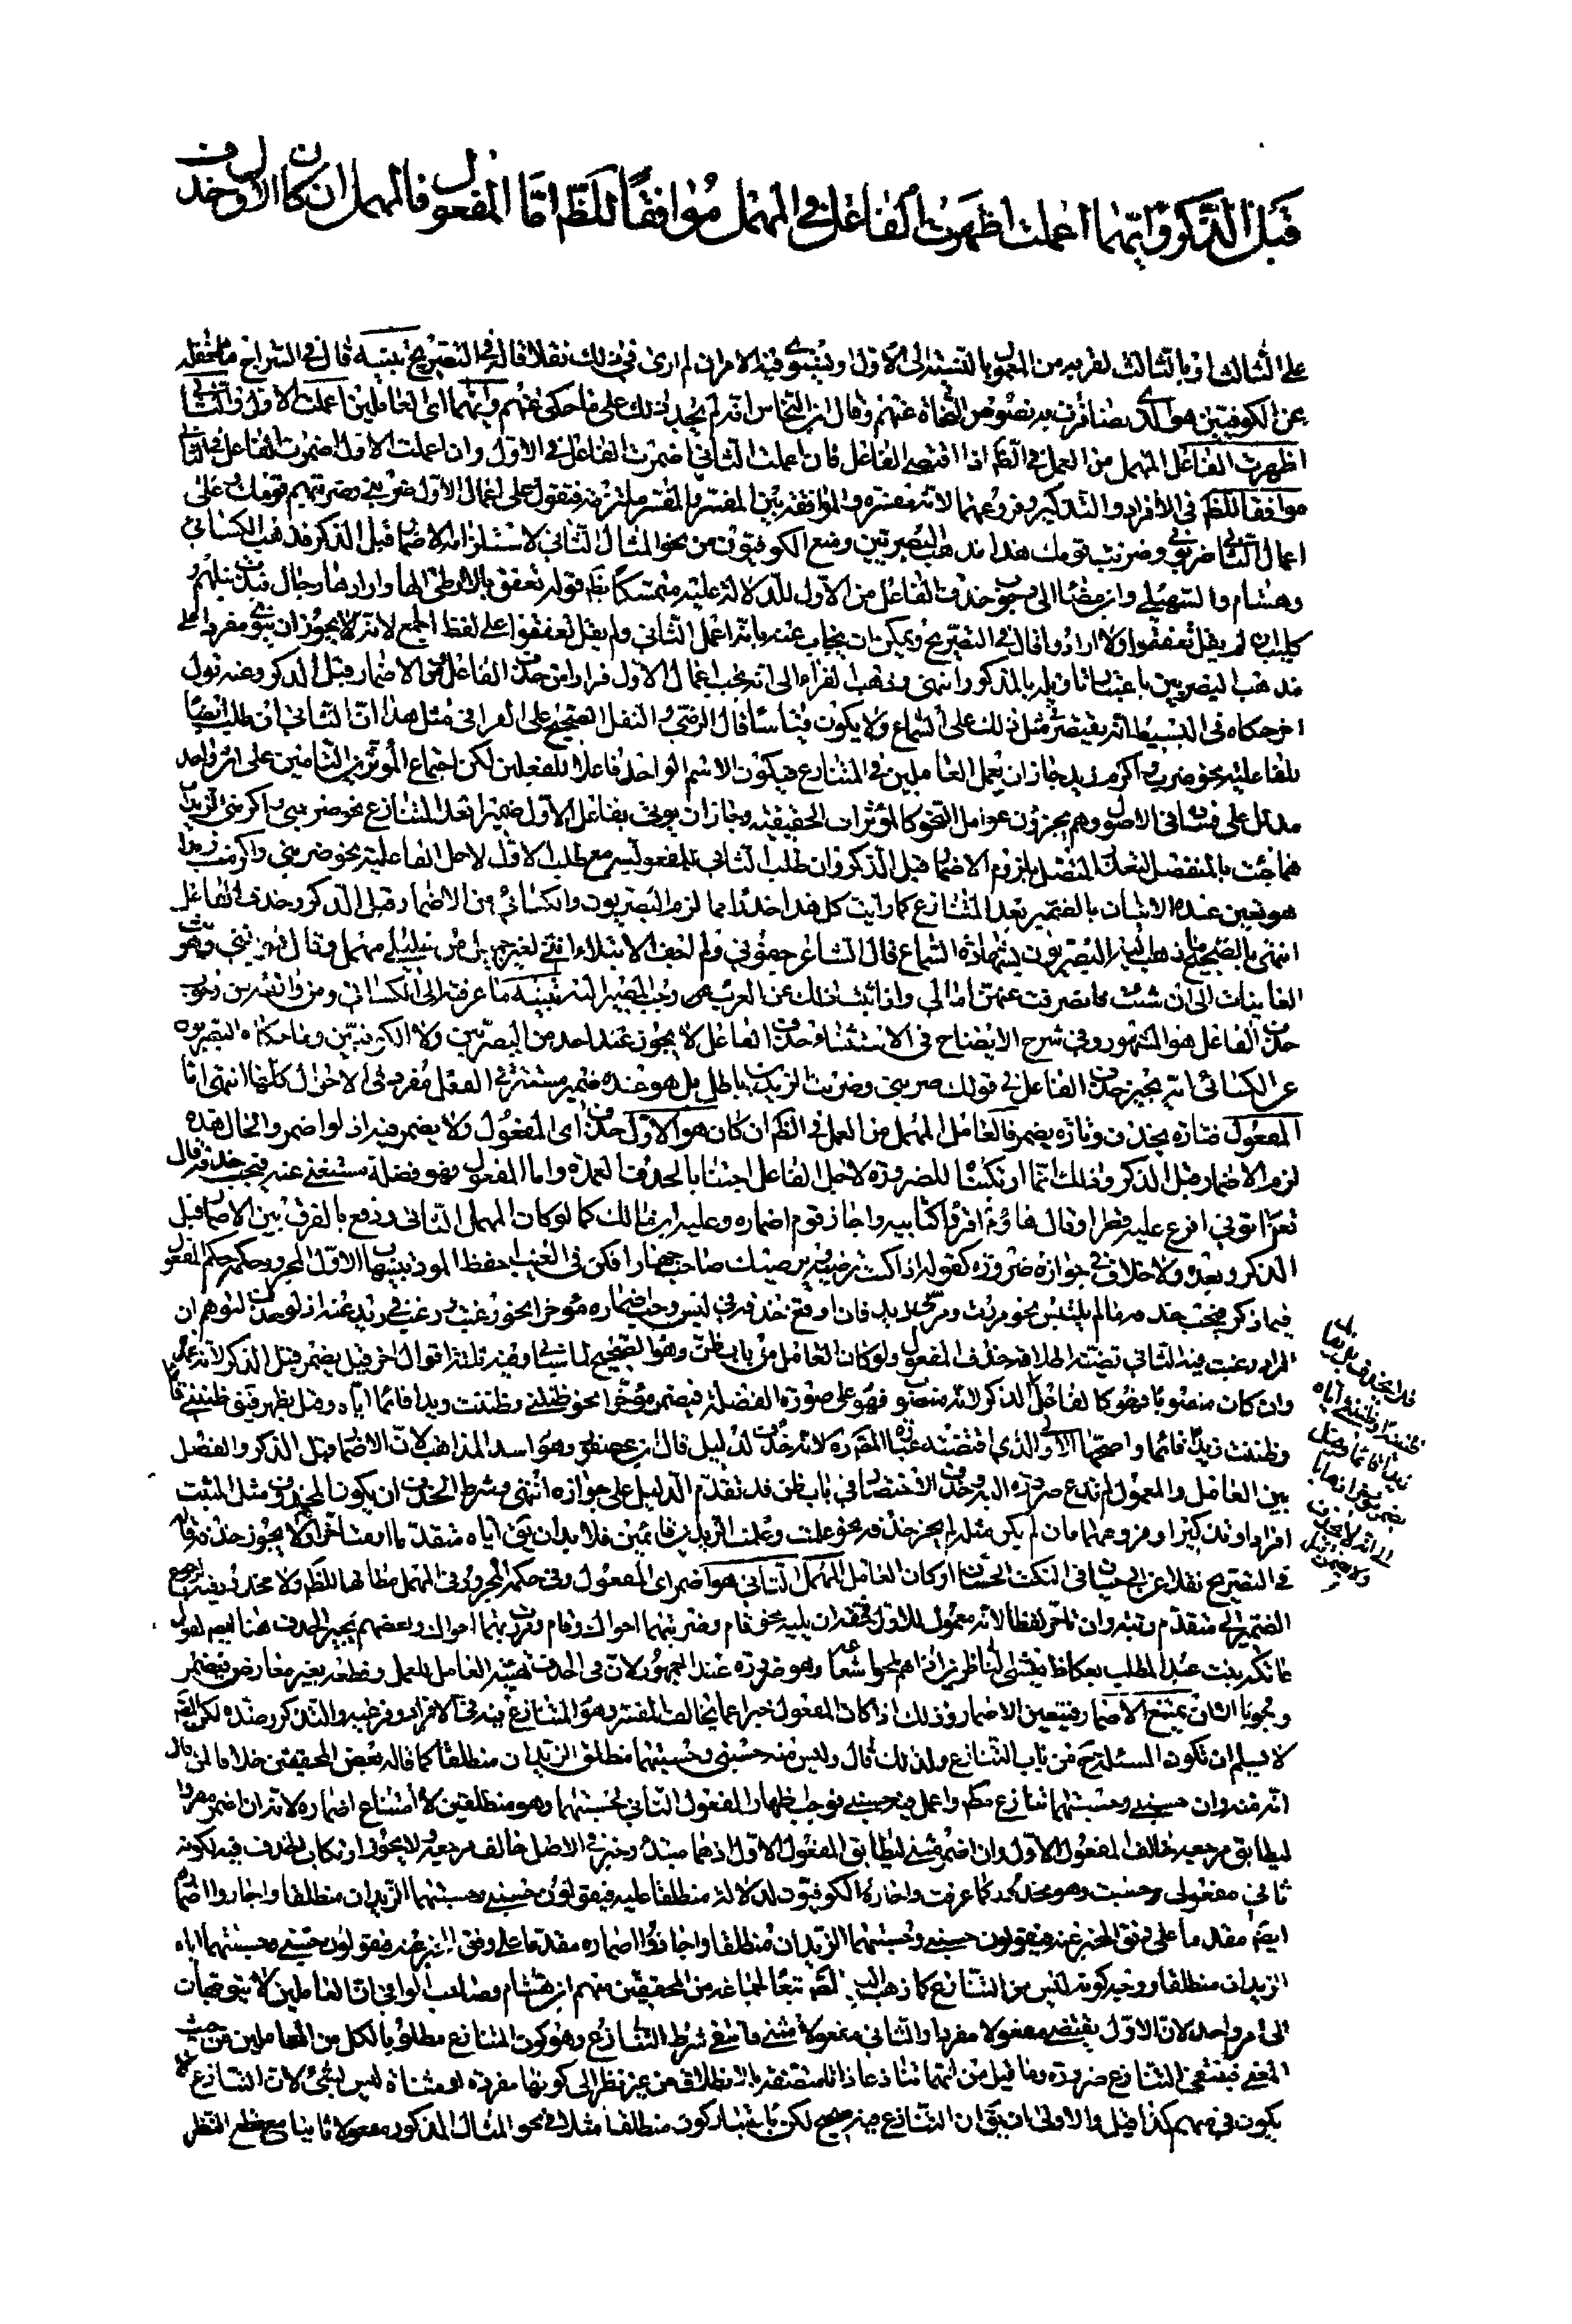 قبل الذكر وايهما اعملت اظهرت الفاعل في المهمل موافقا للظم اما المفعول فالمهمل ان كان الاول حذف
على الثالث او بالثالث لقربه من المعمول بالنسبة الى الاول ويستوي فيه الامران لم ار في ذلك نقلا قاله في التصريح تنبيه قال في الشرح ما نقله
عن الكوفيين هو الذي تضافرت به نصوص النحاة عنهم وقال ابن النحاس انه لم يجد ذلك على ما حكى عنهم وايهما اى العاملين اعملت الاول والثاني
اظهرت الفاعل المهمل من العمل في الظم اذا اقتضى الفاعل فان اعملت الثاني اضمرت الفاعل في الاول وان اعملت الاول اضمرت الفاعل في الثاني
موافقا للظم في الافراد والتذكير وفروعهما لانه مفسره والموافقة بين المفسر والمفسر ملتزمة فتقول على اعمال الاول ضربني وضربتهم قومك وعلى
اعمال الثاني ضربوني وضربت قومك هذا مذهب البصريين ومنع الكوفيون من نحو المثال الثاني لاستلزامه الاضمار قبل الذكر فذهب الكسائي
وهشام والسهيلي وابن مضاء الى وجوب حذف الفاعل من الاول للدلالة عليه متمسكا بظم قوله تعفق بالارطى لها وارادها رجال فبذت نبلهم و
كليب لم يقل تعفقوا ولا ارادوا قال في التصريح ويمكن ان يجاب عنه بانه اعمل الثاني ولم يقل تعفقوا على لفظ الجمع لانه لا يجوز ان ينوي مفردا على
مذهب البصريين باعتبار تاويله بالمذكور انتهى وذهب الفراء الى انه يجب اعمال الاول فرارا من حذف الفاعل ومن الاضمار قبل الذكر وعنه قول
اخر حكاه في البسيط انه يقتصر مثل ذلك على السماع ولا يكون قياسا قال الرضي والنقل الصحيح على الفراء في مثل هذا ان الثاني ان طلب ايضا
للفاعلية نحو ضرب واكرم زيد جاز ان يعمل العاملين في المتنازع فيكون الاسم الواحد فاعلا للفعلين لكن اجتماع المؤثرين التامين على اثر واحد
مدلل على فساده في الاصول وهم يجرون عوامل النحو كالمؤثرات الحقيقية وجاز ان يوتى بفاعل الاول ضميرا بعد المتنازع نحو ضربني واكرمني زيد
هو جئت بالمنفصل لتعذر المتصل بلزوم الاضمار قبل الذكر وان طلب الثاني للمفعولية مع طلب الاول لاجل الفاعلية نحو ضربني واكرمت زيدا
هو تعين عنده الاتيان بالضمير بعد المتنازع كما رايت كل هذا حذرا مما لزم البصريون والكسائي من الاضمار قبل الذكر وحذف الفاعل
انتهى والصحيح ما ذهب اليه البصريون بشهادة السماع قال الشاعر جفوني ولم اجف الاخلاء انني لغير جميل من خليلي مهمل وقال هوينني وهويت
الغانيات الى ان شئت فانصرفت عنهن امالي واذا ثبت ذلك عن العرب وجب المصير اليه تنبيه ما عرفته الى الكسائي ومن وافقه من وجوب
حذف الفاعل هو المشهور وفي شرح الايضاح في الاستثناء حذف الفاعل لا يجوز عند احد من البصريين ولا الكوفيين وما حكاه البصريون
عن الكسائي انه يجيز حذف الفاعل في قولك ضربني وضربت الزيدين باطل بل هو عنده ضمير مستتر في الفعل مفرد في الاحوال كلها انتهى اما
المفعول فتارة يحذف وتارة يضمر فالعامل المهمل من العمل في الظم ان كان هو الاول حذف اى المفعول ولا يضمر فيه اذ لو اضمر والحال هذه
لزم الاضمار قبل الذكر وذلك انما ارتكبناه للضرورة لاجل الفاعل اجتنابا لحذف العمدة واما المفعول فهو فضلة مستغنى عنه فيجب حذفه قال
تعالى اتوني افرغ عليه قطرا وقال هاؤم اقرؤا كتابيه واجاز قوم اضماره وعليه ابن مالك كما لو كان المهمل الثاني ودفع بالفرق بين الاضمار قبل
الذكر وبعده ولا خلاف في جوازه ضرورة كقوله اذا كنت ترضيه ويرضيك صاحب جهارا فكن في الغيب احفظ للود تنبيه الاول المجرور حكمه حكم المفعول
فيما ذكر فيجب حذفه ما لم يلتبس نحو مررت ومر بي زيد فان اوقع حذفه في لبس وجب اضماره مؤخرا نحو رغبت ورغب في زيد عنه اذ لو حذف لتوهم ان
المراد رغبت فيه الثاني قضية اطلاقه حذف المفعول ولو كان العامل من باب ظن وهو الصحيح لما سياتي وفيه ثلثة اقوال اخر قيل يضمر قبل الذكر لانه عمدة
وان كان منصوبا فهو كالفاعل الذكر لانه منصوب فهو على صورة الفضلة فيضمر مؤخرا نحو ظنني وظننت زيدا قائما اياه وقيل يظهر فيق ظنني قائما
وظننت زيدا قائما واصحها الاول والذي اقتضته عبارة المص لانه حذف لدليل قال ابن عصفور وهو اسد المذاهب لان الاضمار قبل الذكر والفصل
بين العامل والمعمول لم تدع ضرورة اليه وحذف الاختصار في باب ظن قد تقدم الدليل على جوازه انتهى وشرط الحذف ان يكون المحذوف مثل المثبت
افرادا وتذكيرا وفروعهما فان لم يكن مثله لم يجز حذفه نحو علمت وعلمني الزيدين قائمين فلا بد ان يق اياه متقدما او متاخرا ولا يجوز حذفه قال
في التصريح نقلا عن ابي حيان في النكت الحسان او كان العامل المهمل الثاني هو اضمر اى المفعول وفي حكمه المجرور في المهمل مطابقا للظم ولا محذور فيه لرجوع
الضمير الى متقدم رتبة وان تاخر لفظا لانه معمول للاول فحقه ان يليه نحو قام وضربتهما اخواك وقام ومررت بهما اخواك وبعضهم يجيز الحذف هنا ايضم لقول
عاتكة بنت عبد المطلب بعكاظ يعشي الناظرين اذا هم لمحوا شعاعه وهو ضرورة عند الجمهور لان في الحذف تهيئة العامل للعمل وقطعه بغير معارض فيضمر
وجوبا الا ان يمتنع الاضمار فيتعين الاظهار وذلك اذا كان المفعول خبرا عما يخالف المفسر وهو المتنازع فيه في الافراد وفرعيه والتذكير وضده لكن المص
لا يسلم ان تكون المسئلة ح من باب التنازع ولذلك قال وليس منه حسبني وحسبتهما منطلق الزيدان منطلقا كما قاله بعض المحققين خلافا لمن قال
انه منه وان حسبني وحسبتهما تنازع منطلقا واعمل فيه حسبني فوجب اظهار المفعول الثاني لحسبتهما وهو منطلقين لامتناع اضماره لانه ان اضمر مفردا
ليطابق مرجعه خالف المفعول الاول وان اضمر مثنى ليطابق المفعول الاول اذ هما مبتدا وخبر في الاصل خالف مرجعه ولا يجوز ارتكاب الحذف فيه لكونه
ثاني مفعولي حسبت وهو محذور كما عرفت واجازه الكوفيون لدلالة منطلقا عليه فيقولون حسبني وحسبتهما الزيدان منطلقا واجازوا اضماره
ايضم مقدما على وفق المخبر عنه فيقولون حسبني وحسبتهما الزيدان منطلقا واجازوا اضماره مقدما على وفق المخبر عنه فيقولون حسبني وحسبتهما اياه
الزيدان منطلقا ووجه كونه ليس من التنازع كما ذهب اليه المص تبعا لجماعة من المحققين منهم ابن هشام وصاحب الوافي ان العاملين لا يتوجهان
الى امر واحد لان الاول يقتضي مفعولا مفردا والثاني مفعولا مثنى فانتفى شرط التنازع وهو كون المتنازع مطلوبا لكل من العاملين من حيث
المعنى فينتفي التنازع ضرورة وما قيل من انهما تنازعا ذاتا متصفة بالانطلاق من غير نظر الى كونها مفردة او مثناة ليس بشئ لان التنازع لا
يكون في مبهم كذا قيل والاولى ان يق ان التنازع فيه صحيح لكن باعتبار كون منطلقا مثلا في نحو المثال المذكور مفعولا ثانيا مع قطع النظر